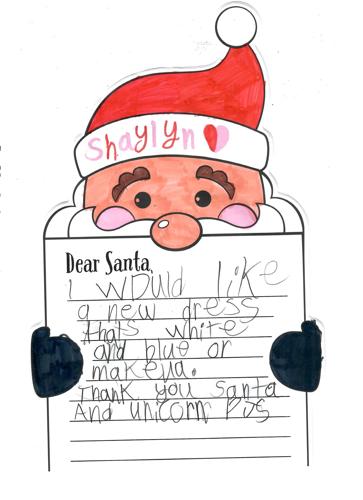 Shaylyn
Dear Santa,
I would like
a new dress
thats white
and blue or
makeua.
Thank you Santa
And unicorn PJs